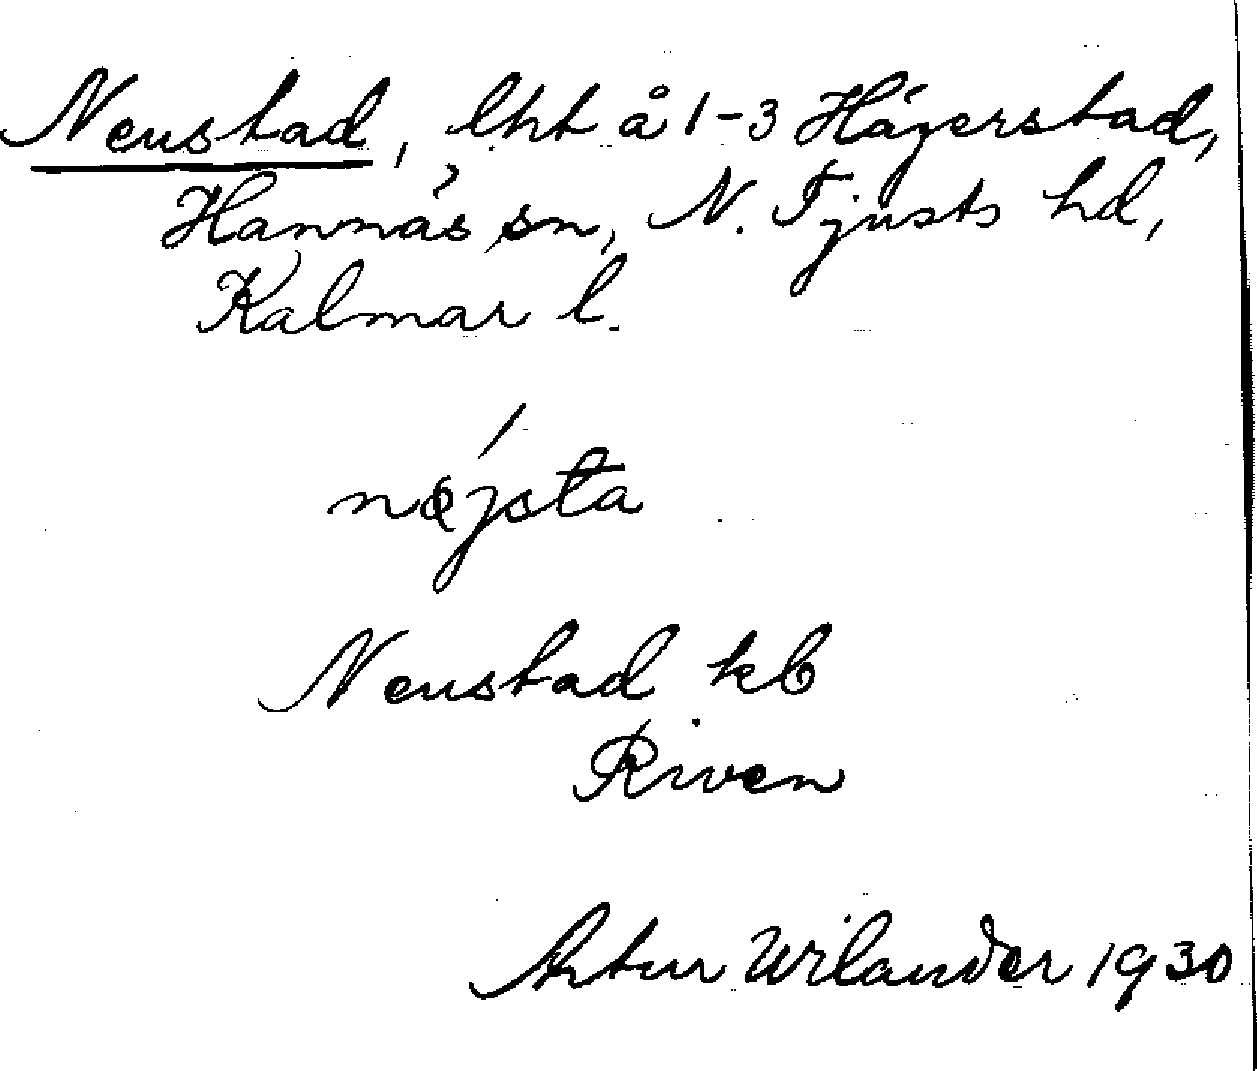 Neustad, lht å 1-3 Hägerstad,
Hannäs sn, N. Tjusts hd,
Kalmar l.
nøjsta
Neustad kb
Riven
Artur Wilander 1930